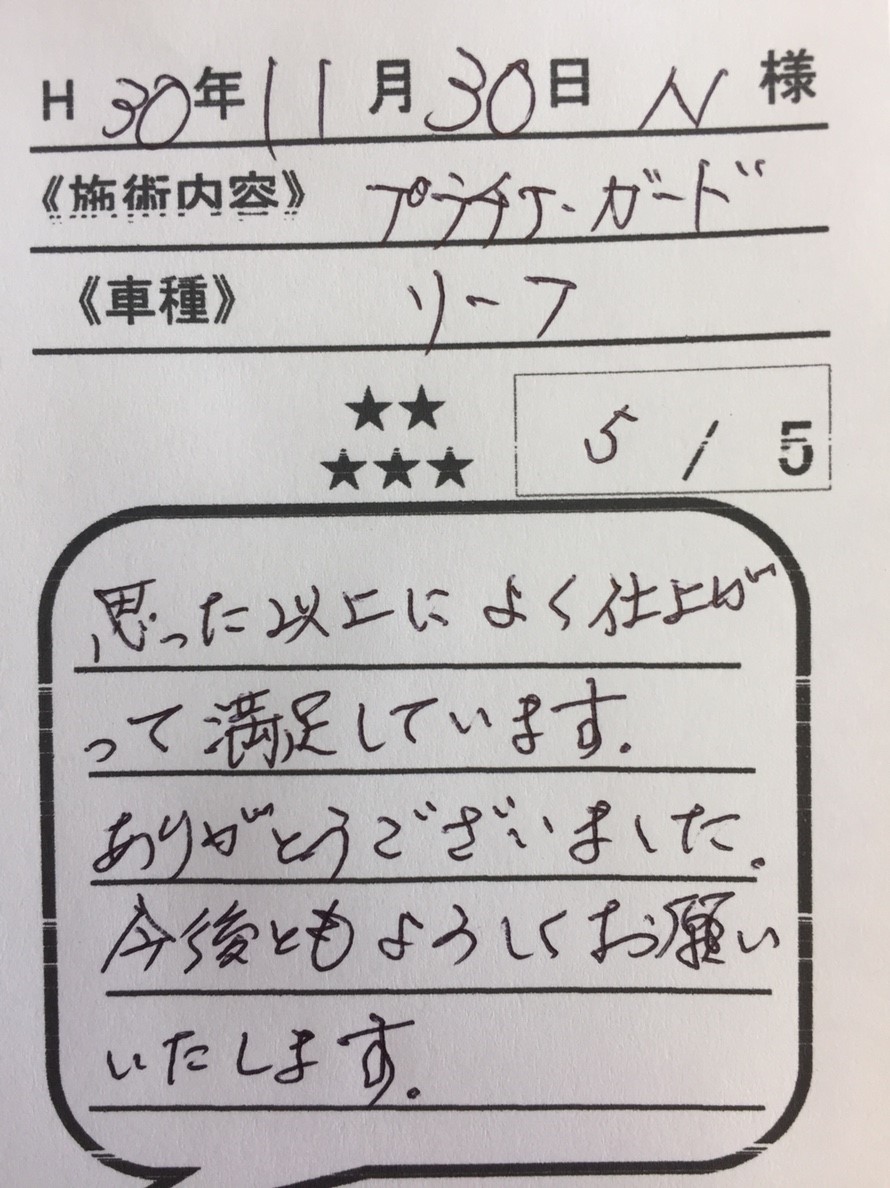 H 30年 11月 30日 N 様
《施術内容》 プラチナ・ガード
《車種》 リーフ
★★
★★★ 5 / 5
思った以上によく仕上が
って満足しています.
ありがとうございました.
今後ともよろしくお願い
いたします.